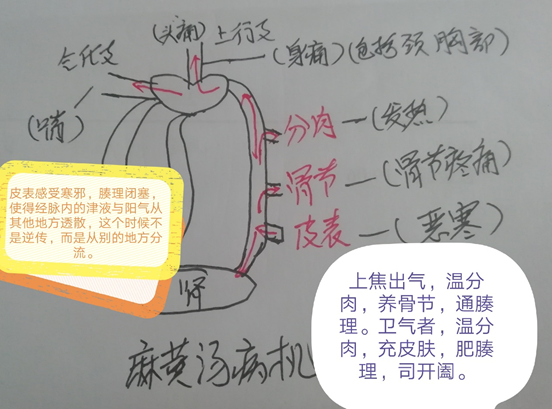 (头痛) 上行支
气化支
(身痛)(包括颈胸部)
(喘)
分肉—(发热)
骨节—(骨节疼痛)
皮表—(恶寒)
皮表感受寒邪，腠理闭塞，
使得经脉内的津液与阳气从
其他地方透散，这个时候不
是逆传，而是从别的地方分
流。
肾
上焦出气，温分
肉，养骨节，通腠
理。卫气者，温分
肉，充皮肤，肥腠
理，司开阖。
麻黄汤病机